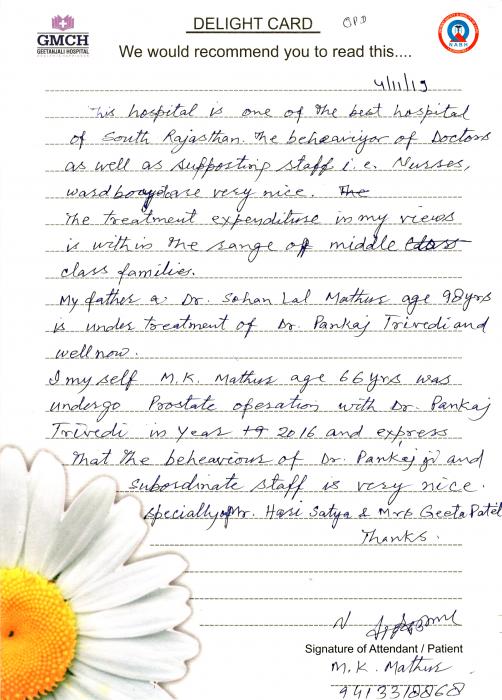 GMCH
GEETANJALI HOSPITAL
DELIGHT CARD
OPD
NABH
We would recommend you to read this....
4/11/19
This hospital is one of the best hospital
of South Rajasthan. The beheaviyor of Doctors
as well as supporting staff i.e. Nurses,
ward boys are very nice. The
The treatment expenditure in my views
is within the range of middle class
class families.
My father a Dr. Sohan Lal Mathur age 98 yrs
is under treatment of Dr. Pankaj Trivedi and
well now.
I my self M.K. Mathur age 66 yrs was
undergo Prostate operation with Dr. Pankaj
Trivedi in Year 2016 and express
that the beheaviour of Dr. Pankaj ji and
subordinate staff is very nice.
specially of Mr. Hari Satya & Mrs Geeta Patel
Thanks.
Signature of Attendant / Patient
M.K. Mathur